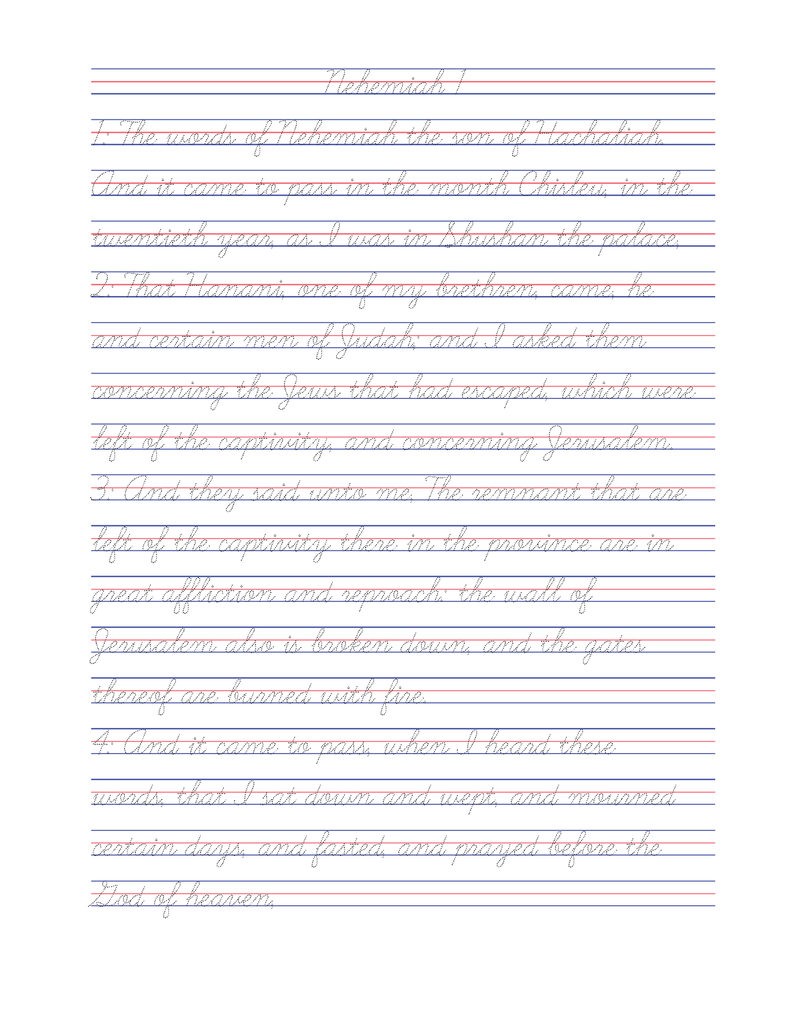 Nehemiah 1
1: The words of Nehemiah the son of Hachaliah.
And it came to pass in the month Chisleu, in the
twentieth year, as I was in Shushan the palace,
2: That Hanani, one of my brethren, came, he
and certain men of Judah; and I asked them
concerning the Jews that had escaped, which were
left of the captivity, and concerning Jerusalem.
3: And they said unto me, The remnant that are
left of the captivity there in the province are in
great affliction and reproach: the wall of
Jerusalem also is broken down, and the gates
thereof are burned with fire.
4: And it came to pass, when I heard these
words, that I sat down and wept, and mourned
certain days, and fasted, and prayed before the
God of heaven,